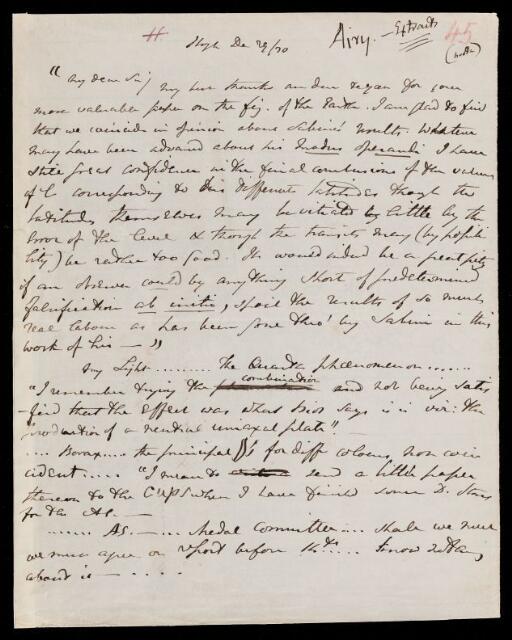 Airy. — Extracts 45
Slough De 29/30
"My dear Sir, my best thanks are due to you for your
more valuable paper on the fig. of the Earth. I am glad to find
that we coincide in opinion about Sabine's results. Whatever
may have been advanced about his modus operandi I have
still great confidence in the final conclusions of the values
of l corresponding to his different latitudes though the
latitudes themselves may be vitiated by little by the
error of the level & though the transits may (by possibi
lity) be rather too good. It would indeed be a great pity
if an observer could by anything short of predetermined
falsification ab initio, spoil the results of so much
real labour as has been gone thro' by Sabine in this
work of his — "
My Light ......... The Quartz phænomenon ......
"I remember trying the combination and not being satis
-fied that the effect was what Biot says it is viz: the
production of a neutral uniaxal plate" —
.... Borax .... the principal for diff colours, non coin
cident ..... "I mean to send a little paper
thereon to the C.U.P.S. when I have finished some D. Stars
for the As. —
...... As. — ... Medal Committee ... shall we meet
we must agree on report before 14th ... know nothing
about it — ....